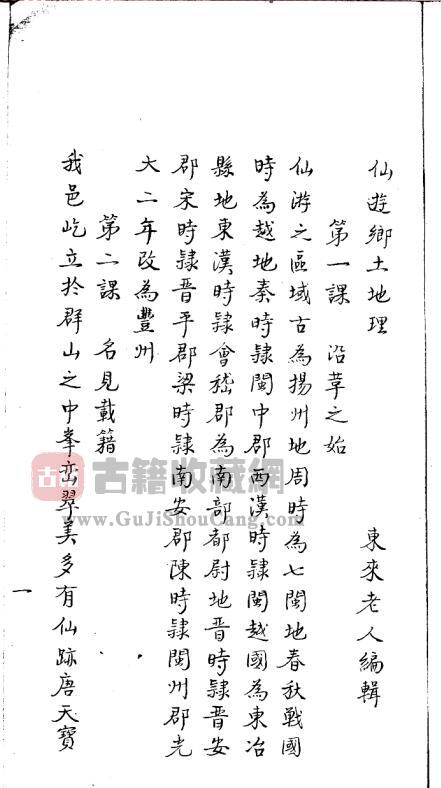 仙遊鄉土地理
東來老人編輯
第一課 沿革之始
仙游之區域古為揚州地周時為七閩地春秋戰國
時為越地秦時隸閩中郡西漢時隸閩越國為東冶
縣地東漢時隸會嵇郡為南部都尉地晉時隸晉安
郡宋時隸晉平郡梁時隸南安郡陳時隸閩州郡光
大二年改為豐州
第二課 名見載籍
我邑屹立於群山之中峯峦翠美多有仙跡唐天寶
一
古籍
古籍收藏網
www.GuJiShouCang.com